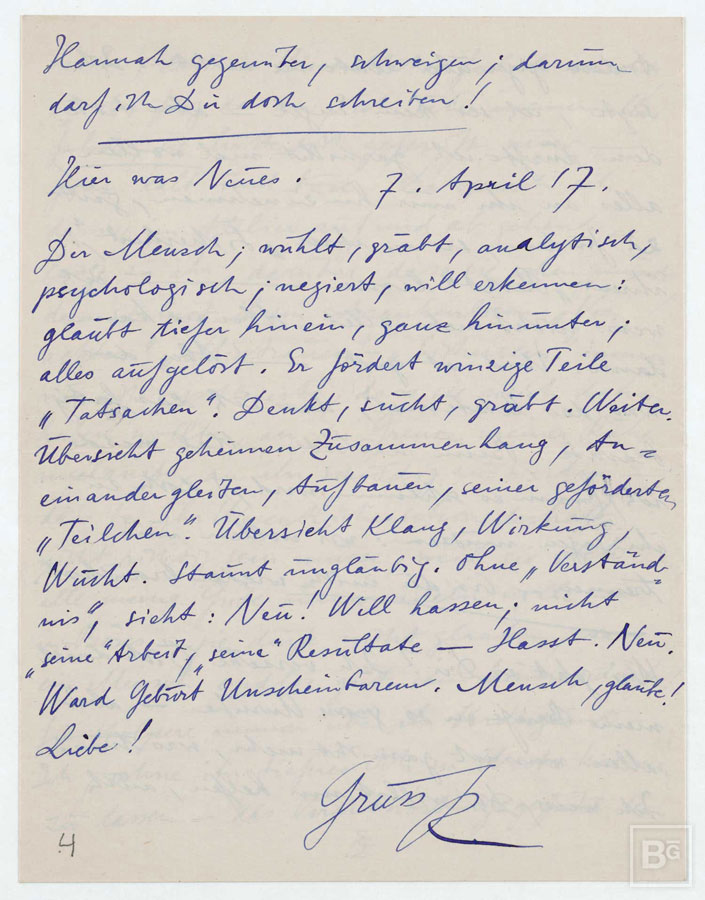 Hannah gegenüber, schweigen; darum
darf ich Dir doch schreiben!
Hier was Neues. 7. April 17.
Der Mensch; wühlt, gräbt, analytisch,
psychologisch; negiert, will erkennen:
glaubt tiefer hinein, ganz hinunter;
alles aufgelöst. Er fördert winzige Teile
„Tatsachen“. Denkt, sucht, gräbt. Weiter.
Übersicht geheimen Zusammenhang, An=
einandergleiten, Aufbauen, seiner geförderten
„Teilchen“. Übersicht Klang, Wirkung,
Wucht. Staunt ungläubig. Ohne „Verständ=
nis“, sieht: Neu! Will hassen; nicht
„seine“ Arbeit, „seine“ Resultate — Hasst. Neu.
Ward Geburt Unscheinbarem. Mensch, glaube!
Liebe!
Gruss
4
BG